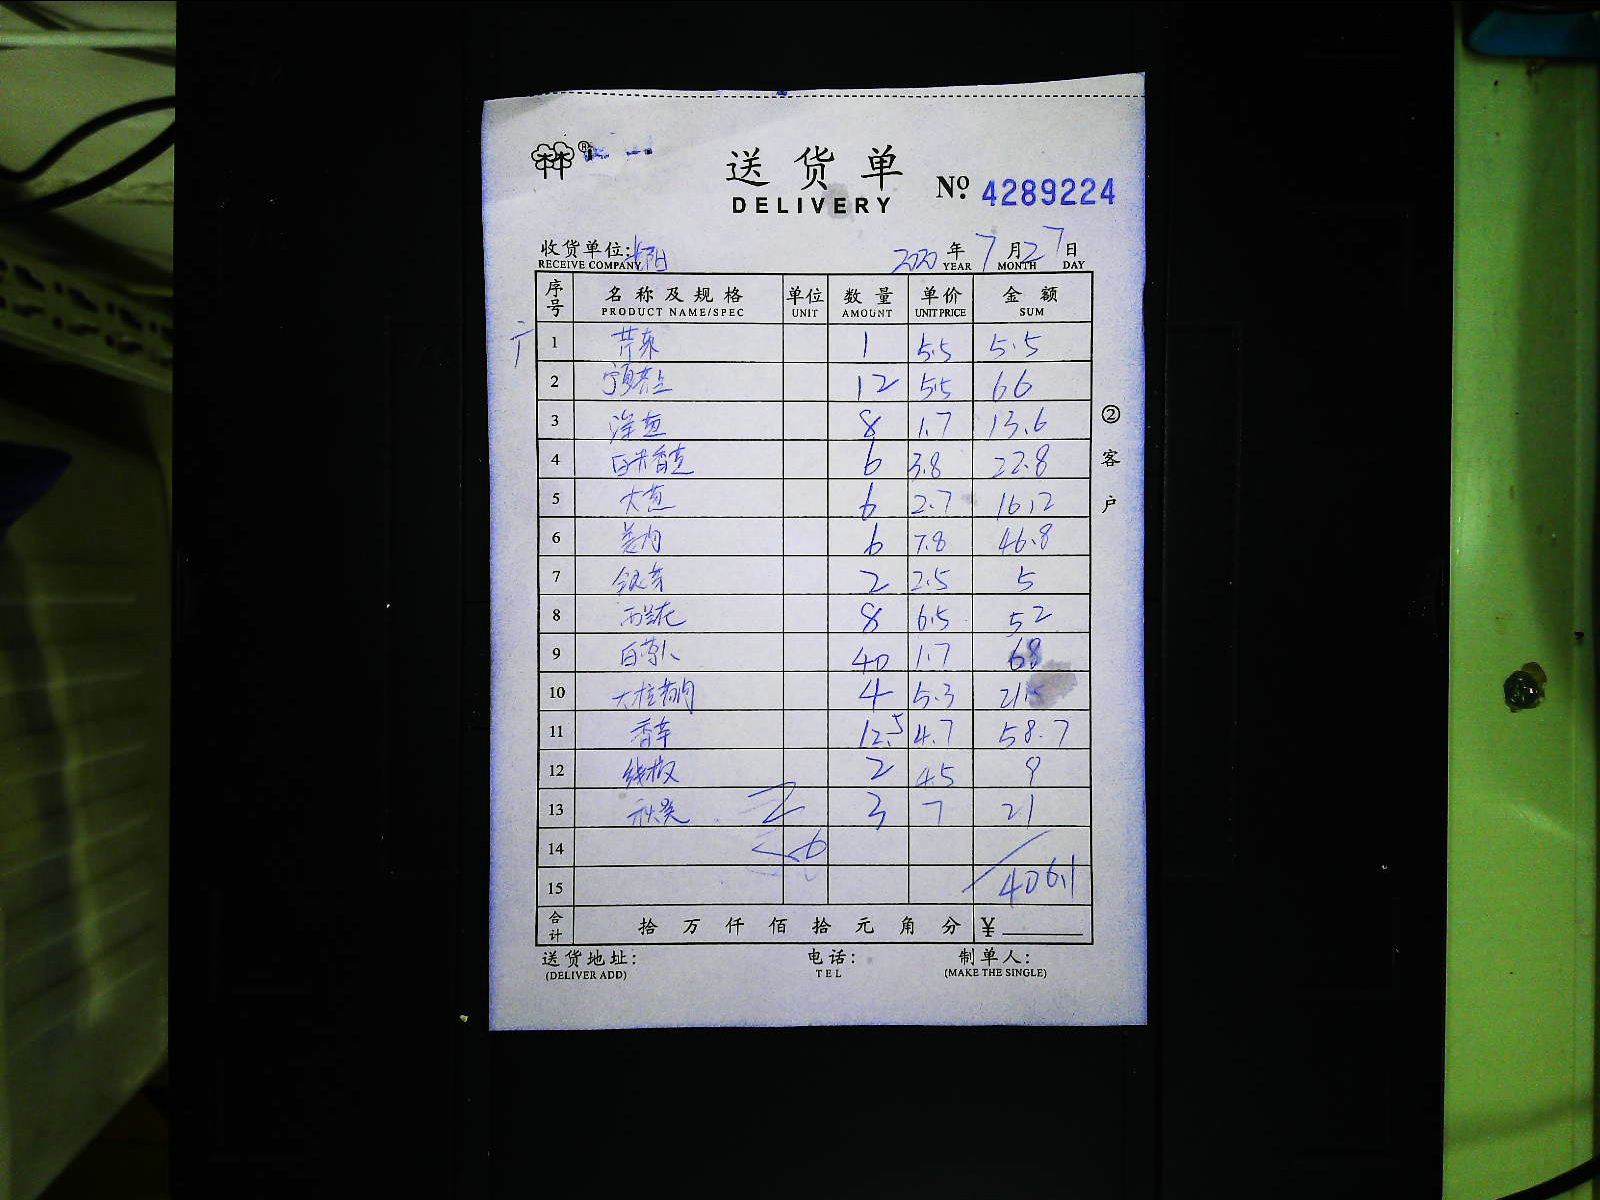 送货单
DELIVERY
№ 4289224
收货单位:
RECEIVE COMPANY
2020 年 7 月 27 日
YEAR MONTH DAY
序号 名称及规格 单位 数量 单价 金额
PRODUCT NAME/SPEC UNIT AMOUNT UNIT PRICE SUM
1 芹菜 1 5.5 5.5
2 宁夏菜心 12 5.5 66
3 洋葱 8 1.7 13.6
4 6 3.8 22.8
5 大葱 6 2.7 16.2
6 姜肉 6 7.8 46.8
7 银芽 2 2.5 5
8 西兰花 8 6.5 52
9 白萝卜 40 1.7 68
10 4 5.3 21.5
11 香芹 12.5 4.7 58.7
12 线椒 2 4.5 9
13 秋葵 3 7 21
14
15 406.1
合计 拾 万 仟 佰 拾 元 角 分 ¥
送货地址: 电话: 制单人:
(DELIVER ADD) TEL (MAKE THE SINGLE)
② 客户